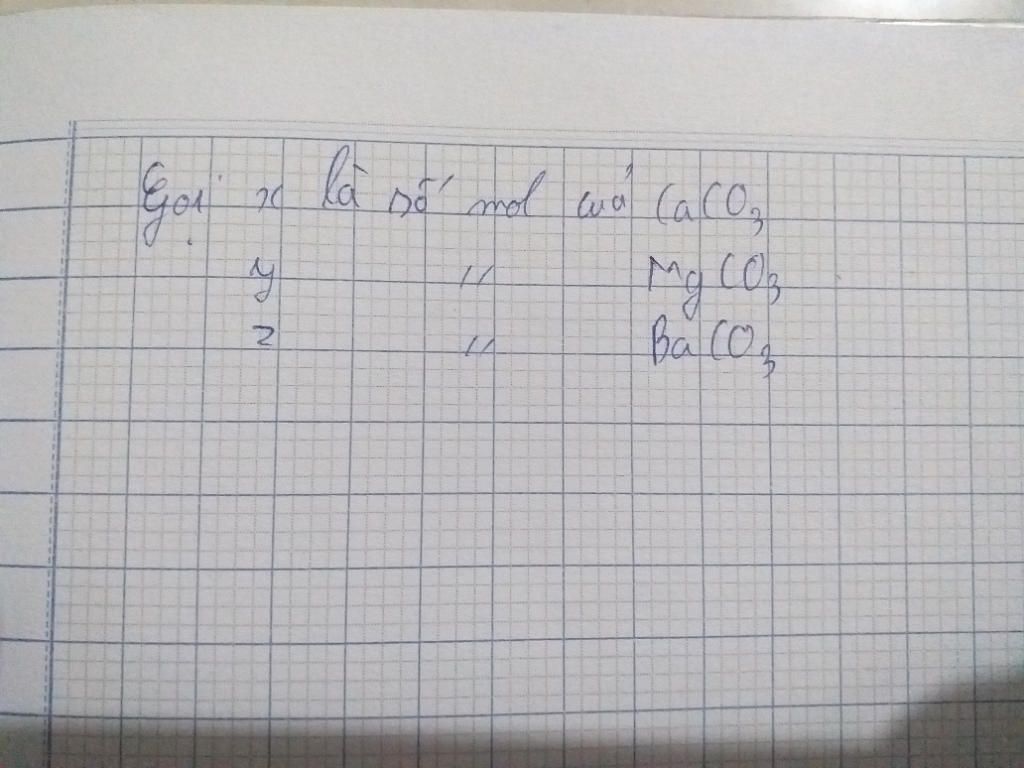 Gọi x là số mol của CaCO₃
y " MgCO₃
z " BaCO₃